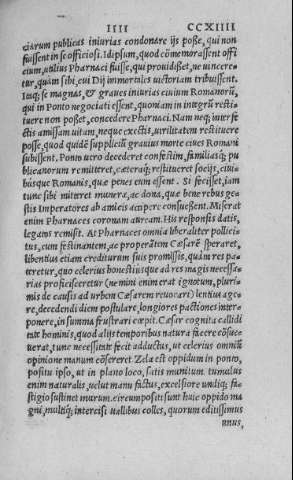 IIII CCXIIII
ciarum publicas iniurias condonare ijs posse, qui non
fuissent in se officiosi. Id ipsum, quod cōmemorassent offi
cium, utilius Pharnaci fuisse, qui prouidisset, ne uincere-
tur, quàm sibi, cui Dij immortales uictoriam tribuissent.
Itaq; se magnas, & graues iniurias ciuium Romanorū,
qui in Ponto negociati essent, quoniam in integrū resti-
tuere non posset, concedere Pharnaci. Nam neq; interfe
ctis amissam uitam, neque exectis, uirilitatem restituere
posse, quod quidē supplicijs grauius morte ciues Romani
subissent. Ponto uero decederet confestim, familiasq; pu
blicanorum remitteret, cæteraq; restitueret socijs, ciui-
busque Romanis, quæ penes eum essent. Si fecisset, iam
tunc sibi mitteret munera, ac dona, quæ bene rebus ge-
stis Imperatores ab amicis accipere consueßent. Miserat
enim Pharnaces coronam auream. His responsis datis,
legatos remisit. At Pharnaces omnia liberaliter pollici-
tus, cum festinantem, ac properātem Cæsarē speraret,
libentius etiam crediturum suis promissis, quàm res pa-
teretur, quo celerius honestiusque ad res magis necessa-
rias proficisceretur (nemini enim erat ignotum, pluri-
mis de causis ad urbem Cæsarem reuocari) lentius age-
re, decedendi diem postulare, longiores pactiones inter
ponere, in summa frustrari cœpit. Cæsar cognita callidi
tate hominis, quod alijs temporibus natura facere cōsue
uerat, tunc necessitate fecit adductus, ut celerius omniū
opinione manum cōsereret. Zela est oppidum in ponto,
positu ipso, ut in plano loco, satis munitum. tumulus
enim naturalis, uelut manu factus, excelsiore undiq; fa-
stigio sustinet murum. circumpositi sunt huic oppido ma
gni, multiq; intercisi uallibus colles, quorum editissimus
unus,